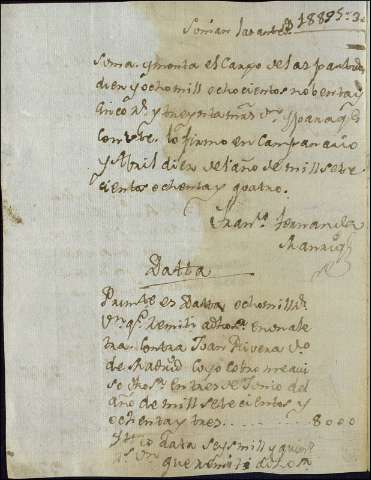 Soman las antes 18895..3
Soma y monta el Cargo de las partidas
diez y ocho mill ochocientos nobenta y
cinco Rs. y treynta mrs. vn. y para q
Conste. lo firmo en Campanario
y Abril diez del año de mill sete
cientos ochenta y quatro.
Franco. Fernandez
Manrique
Datta
Prime. es Datta ocho mill Rs.
vn. qe. remiti a dho Sr. en una le
tra contra Juan Rivera Vo.
de Madrid cuyo cobro me avi
so dho Sr. en tres de Junio del
año de mill setecientos y
ochenta y tres........8000
Ytt. es data seys mill y quin
Rs. vn. que remiti a dho Sr